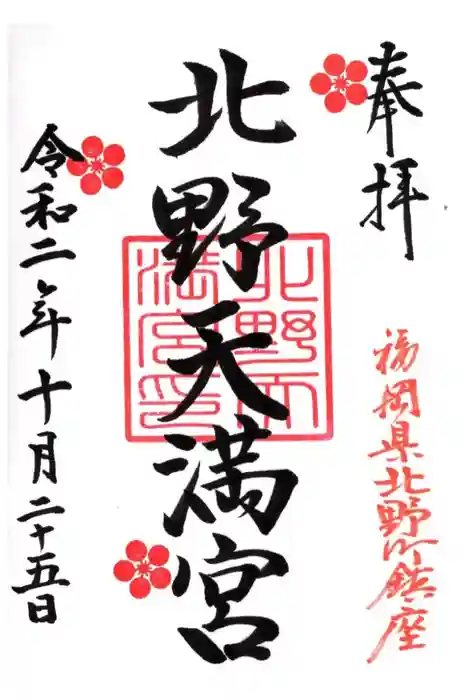 奉拝
福岡県北野町鎮座
北野天満宮
北野天満宮印
令和二年十月二十五日